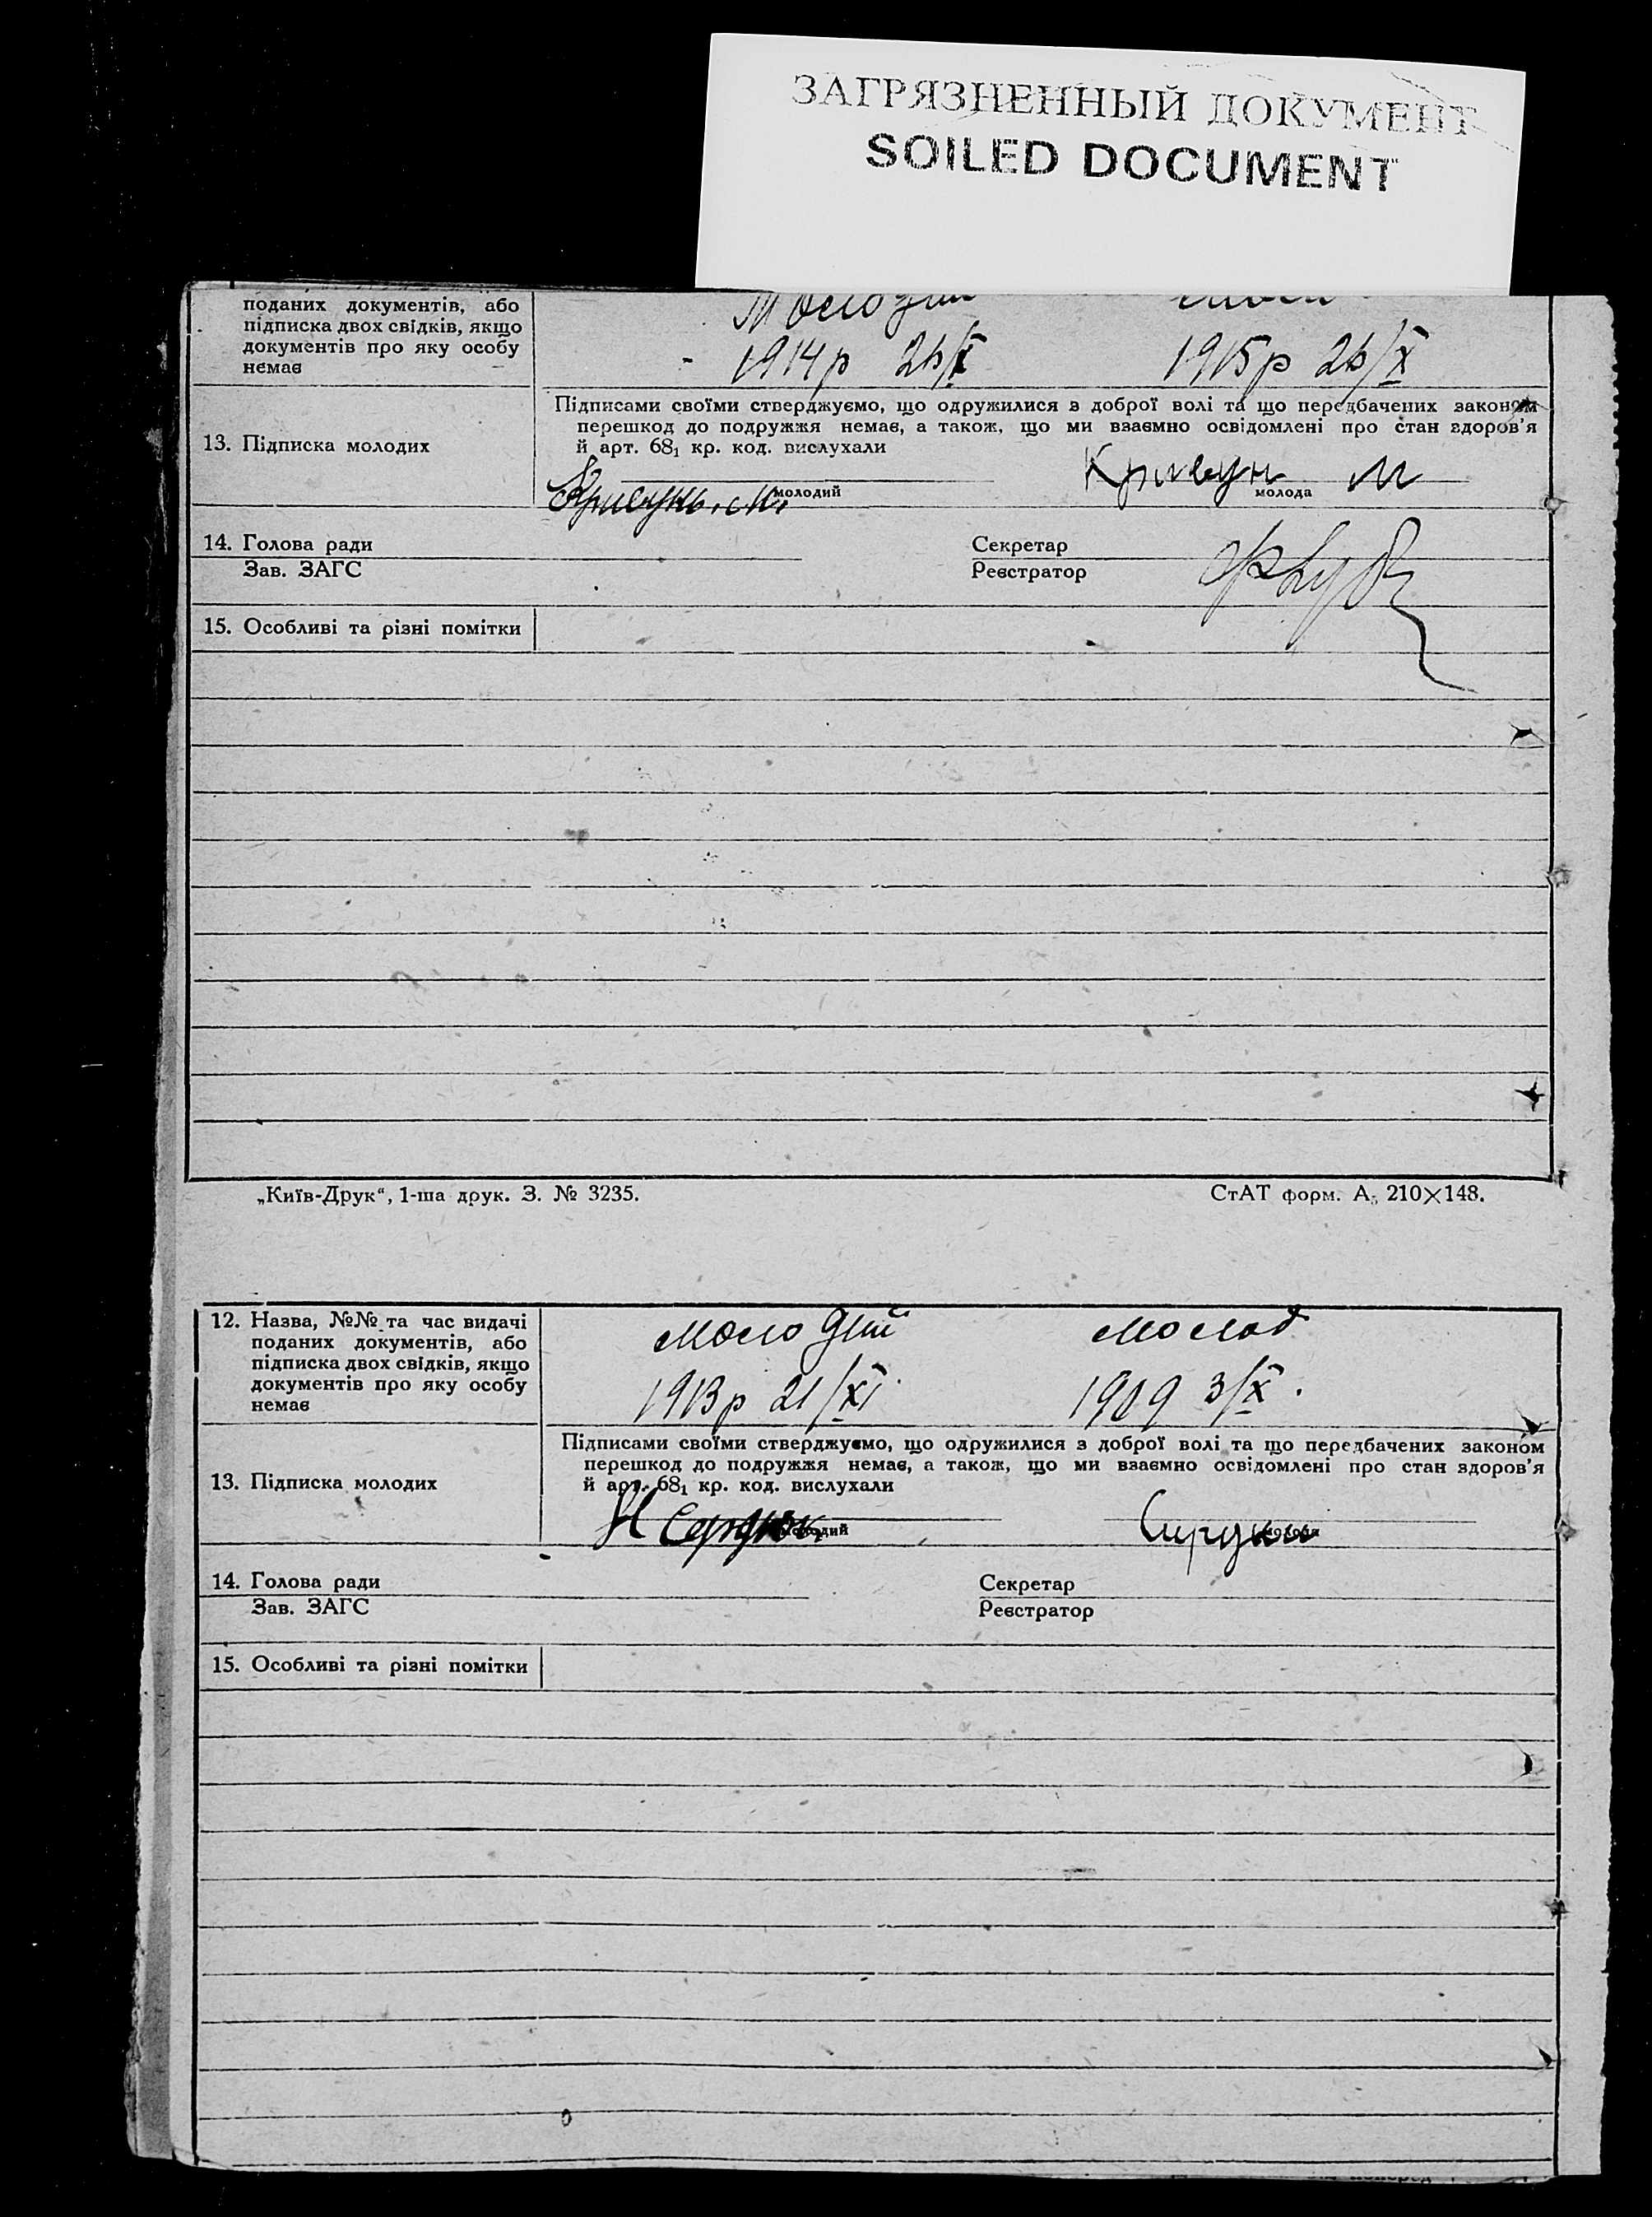 ЗАГРЯЗНЕННЫЙ ДОКУМЕНТ
SOILED DOCUMENT
поданих документів, або
підписка двох свідків, якщо
документів про яку особу
немає
Молодий
1914р 26/X 1915р 26/X
13. Підписка молодих
Підписами своїми стверджуємо, що одружилися з доброї волі та що передбачених законом
перешкод до подружжя немає, а також, що ми взаємно освідомлені про стан здоров'я
й арт. 68₁ кр. код. вислухали
Кривунь. М. Кривун М
молодий молода
14. Голова ради Секретар
Зав. ЗАГС Реєстратор
15. Особливі та різні помітки
„Київ-Друк“, 1-ша друк. З. № 3235. СтАТ форм. А₅ 210×148.
12. Назва, №№ та час видачі
поданих документів, або
підписка двох свідків, якщо
документів про яку особу
немає
Молодий Молод
1913р 21/XI 1909 3/X.
13. Підписка молодих
Підписами своїми стверджуємо, що одружилися з доброї волі та що передбачених законом
перешкод до подружжя немає, а також, що ми взаємно освідомлені про стан здоров'я
й арт. 68₁ кр. код. вислухали
Н Сердюк
молодий молода
14. Голова ради Секретар
Зав. ЗАГС Реєстратор
15. Особливі та різні помітки